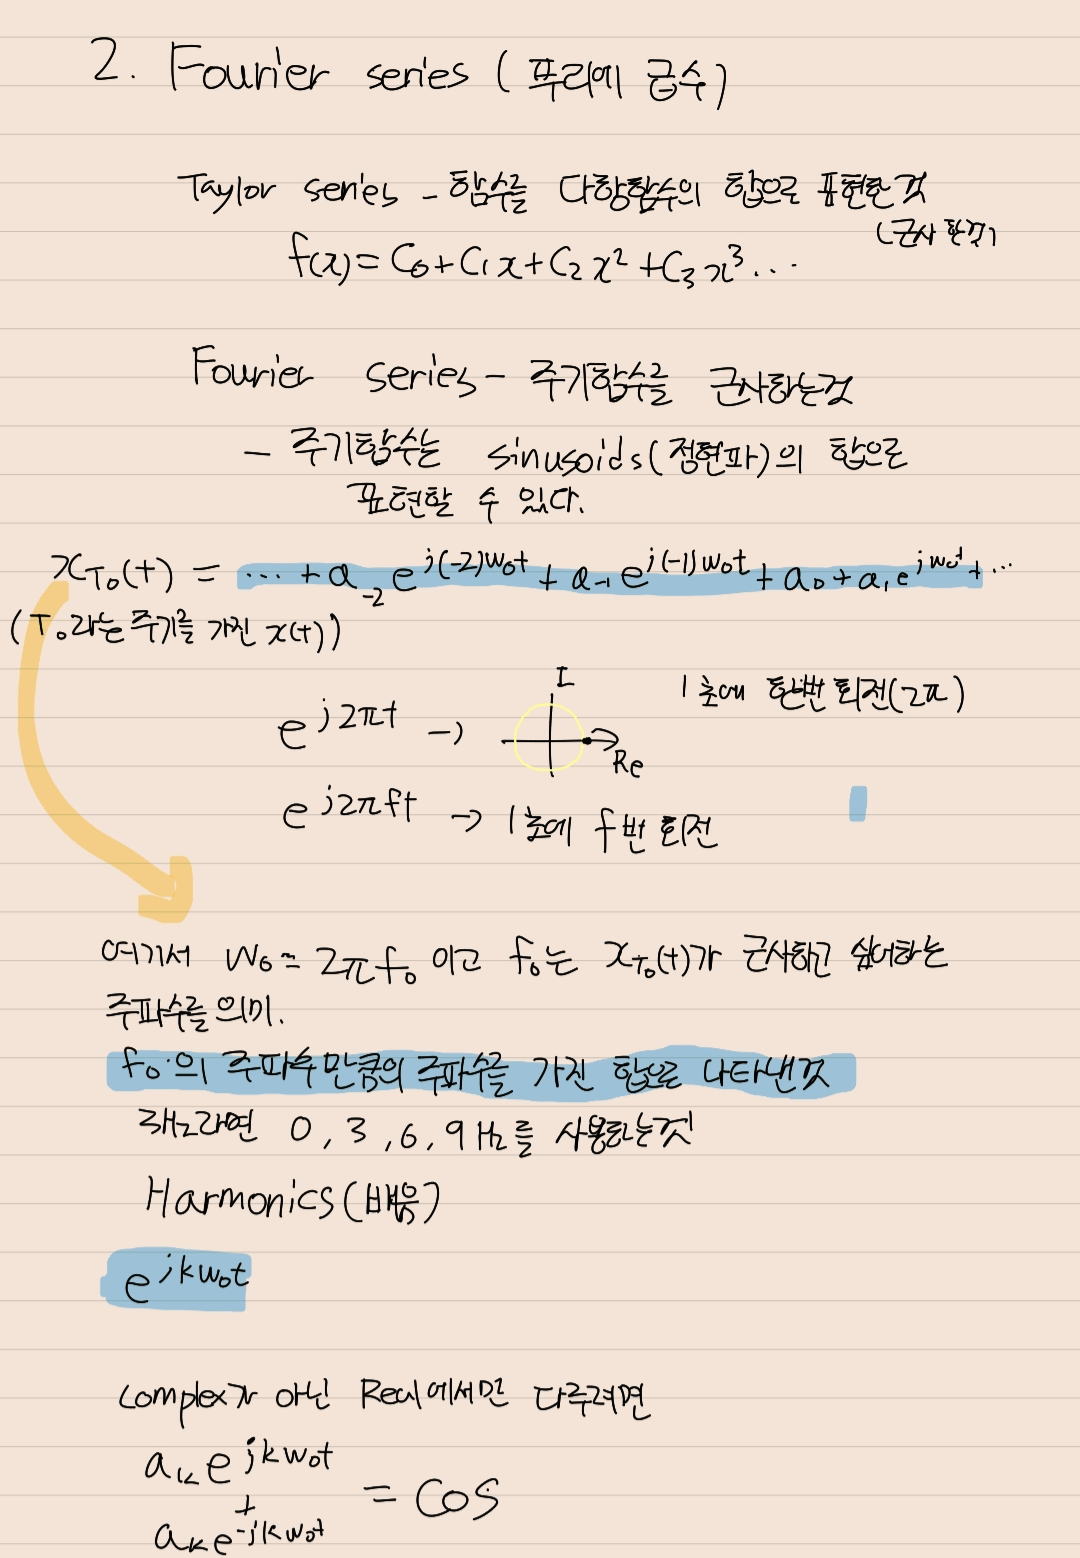 2. Fourier series (푸리에 급수)
Taylor series - 함수를 다항함수의 합으로 표현한 것
(근사 한것)
f(x) = C₀ + C₁x + C₂x² + C₃x³ ...
Fourier series - 주기함수를 근사하는것
- 주기함수는 sinusoids(정현파)의 합으로
표현할 수 있다.
x_T₀(t) = ... + a₋₂ e^j(-2)w₀t + a₋₁ e^j(-1)w₀t + a₀ + a₁e^jw₀t + ...
(T₀라는 주기를 가진 x(t))
I
1초에 한번 회전(2π)
e^j2πt →
Re
e^j2πft → 1초에 f번 회전
여기서 w₀ = 2πf₀ 이고 f₀는 x_T₀(t)가 근사하고 싶어하는
주파수를 의미.
f₀의 주파수만큼의 주파수를 가진 합으로 나타낸것
3Hz라면 0, 3, 6, 9Hz를 사용하는것
Harmonics(배음)
e^jkw₀t
Complex가 아닌 Real에서만 다루려면
a_k e^jkw₀t
+
= cos
a_k e^-jkw₀t